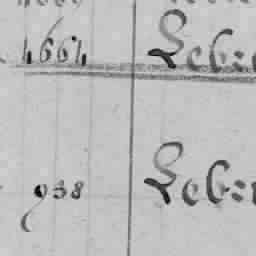 4664 Leb:
938 Leb: